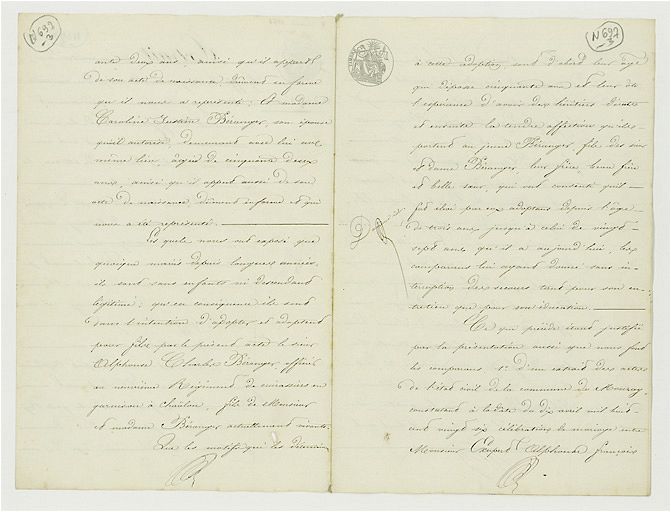 N 697
-3
ante deux ans ; ainsi qu'il appert
de son acte de naissance dûment en forme
qu'il nous a représenté ; Et madame
Caroline Justine Béranger, son épouse
qu'il autorise, demeurant avec lui au
même lieu, âgée de cinquante deux
ans, ainsi qu'il appert aussi de son
acte de naissance dûment en forme et qui
nous a été représenté.
Lesquels nous ont exposé que
quoique mariés depuis longues années,
ils sont sans enfants ni descendants
légitimes ; qu'en conséquence ils sont
dans l'intention d'adopter et adoptent
pour fils par le présent acte le sieur
Alphonse Charles Béranger, officier
au neuvième Régiment de cuirassiers en
garnison à , fils de Monsieur
et madame Béranger actuellement vivants.
Que les motifs qui les déterminent
N 697
-3
à cette adoption, sont d'abord leur âge
qui dépasse cinquante ans et leur ôte
l'espérance d'avoir des héritiers directs
et ensuite la tendre affection qu'ils
portent au jeune Béranger, fils des sieur
et dame Béranger, leur frère, beau frère
et belle sœur, qui ont consenti qu'il
fut élevé par eux adoptans depuis l'âge
de trois ans jusqu'à celui de vingt
sept ans qu'il a aujourd'hui, les
comparans lui ayant donné sans in-
terruption des secours tant pour son en-
tretien que pour son éducation.
Ce qui précède étant justifié
par la présentation ainsi que nous font
les comparans 1° d'un extrait des actes
de l'état civil de la commune de Mouzay
constatant à la date du dix avril mil huit
cent vingt six célébration de mariage entre
Monsieur Exupert Alphonse François